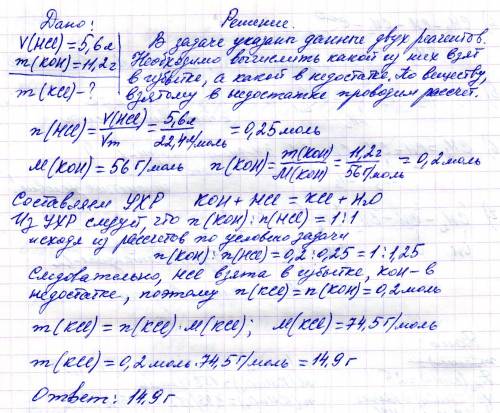 Дано:
Решение.
V(HCl)=5,6л
m(KOH)=11,2г
m(KCl)-?
В задаче указаны данные двух реагентов.
Необходимо вычислить какой из них взят
в избытке, а какой в недостатке. По веществу,
взятому в недостатке проводим рассчёт.
n(HCl)=V(HCl)/Vm=5,6л/22,4л/моль=0,25моль
M(KOH)=56г/моль n(KOH)=m(KOH)/M(KOH)=11,2г/56г/моль=0,2моль
Составляем УХР KOH+HCl=KCl+H₂O
Из УХР следует, что n(KOH):n(HCl)=1:1
исходя из рассчетов по условию задачи
n(KOH):n(HCl)=0,2:0,25=1:1,25
Следовательно, HCl взята в избытке, KOH-в
недостатке, поэтому n(KCl)=n(KOH)=0,2моль
m(KCl)=n(KCl)·M(KCl); M(KCl)=74,5г/моль
m(KCl)=0,2моль·74,5г/моль=14,9г
Ответ: 14,9г